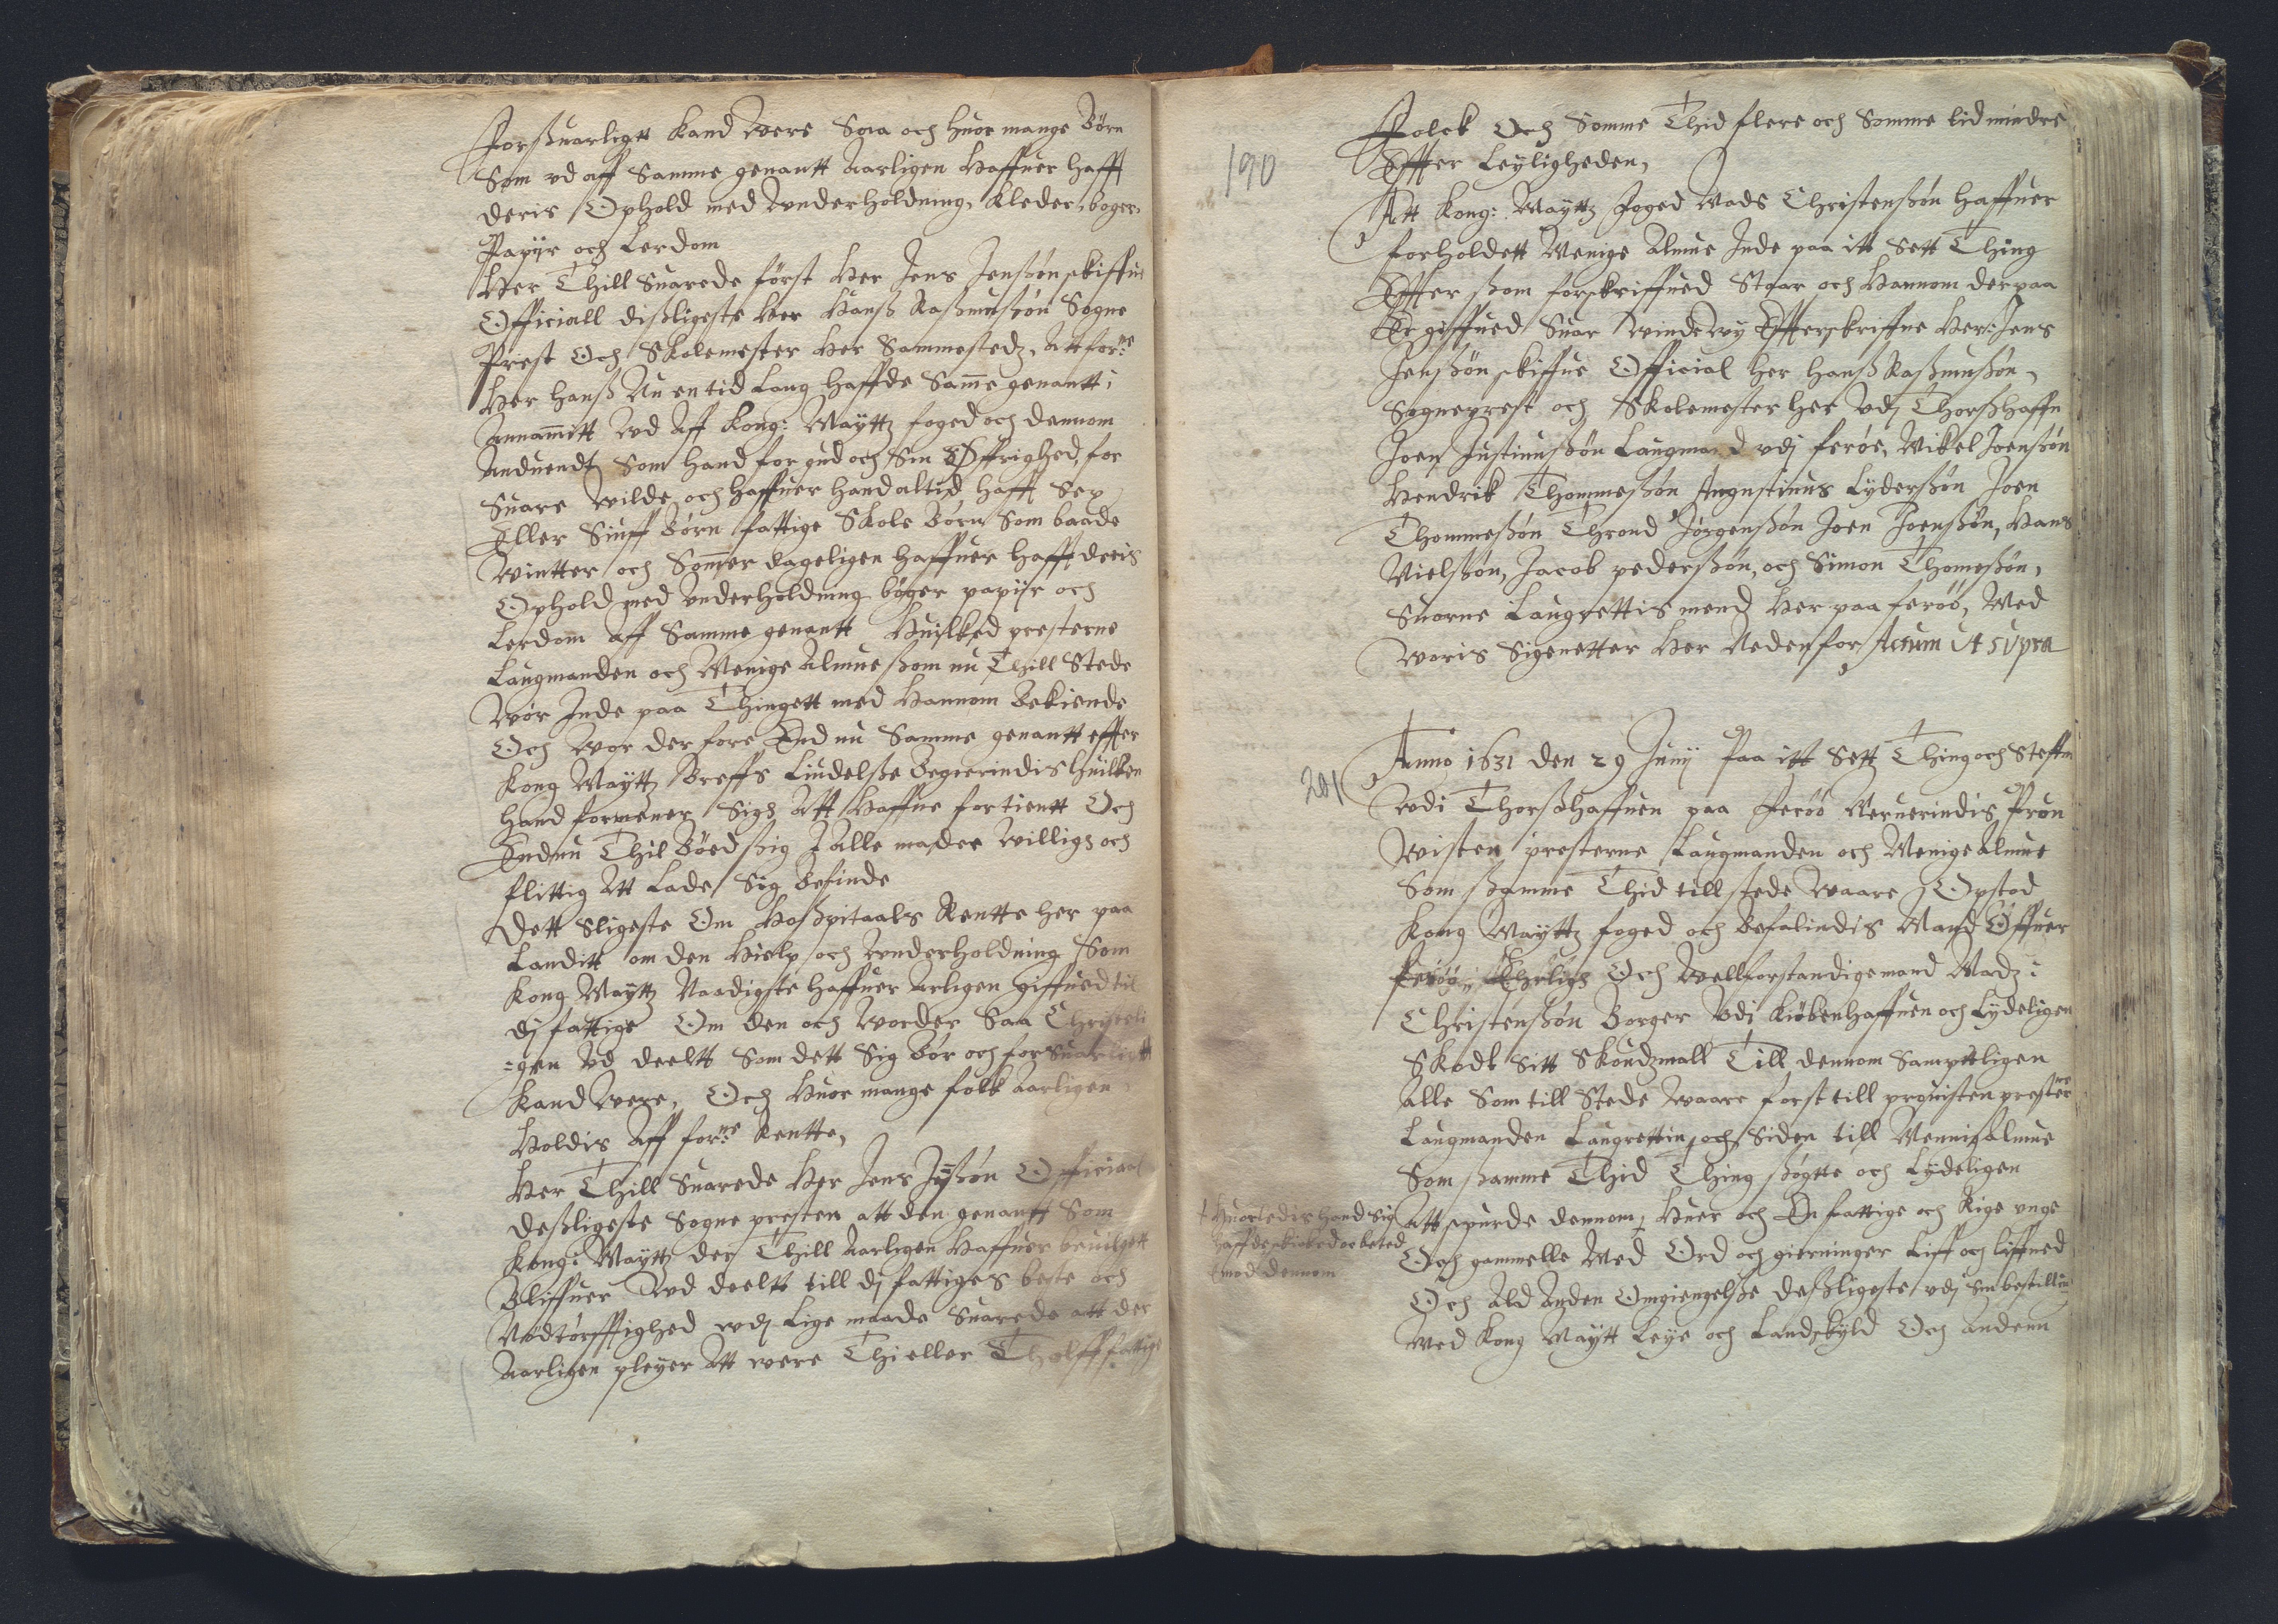 Forsuarligtt kand were Saa och huor mange Børn
Som vd aff Samme genantt Aarligen Haffuer hafft
deris Ophold med Vnderholdning, Kleder, bøger,
Papijr och Lerdom
Her Thill Suarede först Her Jens Jensøn skiffue
Officiall disligeste Her Hanß Raßmusøn Sogne
Prest Och Skolemester Her Sammestedz, Att forne
Her Hanß Nu en tid Lang Haffde Same genantt
Annamitt Vd Aff Kong: Maÿttz foged och dennom
Anduendt Som Hand for gud och Sin Øffrighed, for
Suare Wilde, och Haffuer Hand altid Hafft Sex
Eller Siuff Børn fattige Skole Børn Som baade
Wintter och Somer dageligen Haffuer Hafft deris
Ophold med Vnderholdning bøger papijr och
Lerdom Aff Samme genantt Huilked presterne
Laugmanden och Menige Almue ßom nu Thill Stede
Wor Inde paa Thingett med Hannom Bekiende
Och Wor der fore End nu Samme genantt effter
Kong Maÿttz Breffs Liudelße Begierindis Huilken
Hand formener Sigh Att Haffue fortientt Och
Endnu Thil Bøed ßig I Alle mader Willigh och
flittig Att Lade Sig Befinde
Dett Sligeste Om Hoßpitaals Rentte Her paa
Landitt om den Hielp och Vnderholdning Som
Kong Maÿttz Naadigste Haffuer Arligen giffued til
dj fattige Om den och Worder Saa Christeli
=gen Vd deeltt Som dett Sig Bør och forsuarligtt
Kand Were, Och Huor mange folk Aarligen
Holdis Aff forne Rentte,
Her Thill Suarede Her Jens Jenßøn Officiaal
Desligeste Sogne presten att den genantt Som
Kong: Maÿttz der Thill Aarligen Haffuer beuilgett
Bliffuer Vd deeltt till dj fattiges beste och
Nødtørfftighed vdj Lige maade Suarede att der
Aarligen pleyer Att were Thi eller Tholff fattige
190
Folck Och Somme Thid flere och Somme tid mindre
Effter Leyligheden,
Att Kong: Maÿttz Foged Mads Christensøn Haffuer
forholdett Menige Almue Inde paa itt Sett Thing
Effter ßom forskriffued Staar och Hannom derpaa
Er giffued Suar Winde Wy Effterskriffne Her: Jens
Jensßøn skiffue Official Her Hanß Raßmusßøn,
Sogneprest och Skolemester Her Vdj Thorßhaffn
Joen Justinusßøn Laugmand vdj ferøe, Mikel Joensøn
Hendrik Thommesøn Augustinus Lyderßøn Joen
Thommesøn Thrond Jørgenßøn Joen Joenßøn, Hans
Nielßøn, Jacob pederßøn, och Simon Thomeßøn,
Suorne Laugrettis mend Her paa ferøe, Med
Woris Signetter Her Neden for Actum ut supra
201
Anno 1631 den 29 Junij Paa itt Sett Thing och Steffne
Vdi Thorßhaffuen paa Ferøe Neruerindis Prou
Wisten presterne Laugmanden och Menige Almue
Som ßamme Thid till stede Waare Opstod
Kong Maÿttz foged och Befalindis Mand Offuer
Ferøe, Ehrligh Och Wellforstandige mand Madz:
Christenßøn Borger Vdj Kiøbenhaffuen och Lydeligen
Skødt Sitt Skoudzmall Till dennom Sampttligen
Alle Som till Stede Waare først till prouisten presterne
Laugmanden Laugrettin, och Siden till Mennig Almue
Som ßamme Thid Thing ßøgtte och Lydeligen
Att spurde dennom, Huer och En fattige och Rige unge
Och gammelle Med Ord och gierninger Liff och Liffned
Och Ald Anden Omgiengelße Desligeste vdj Sin bestilling
Med Kong Maÿtt Leye och Landskyld Och Andenn
† Huorledis Hand Sig
Haffde skicked och beted
Emod dennom